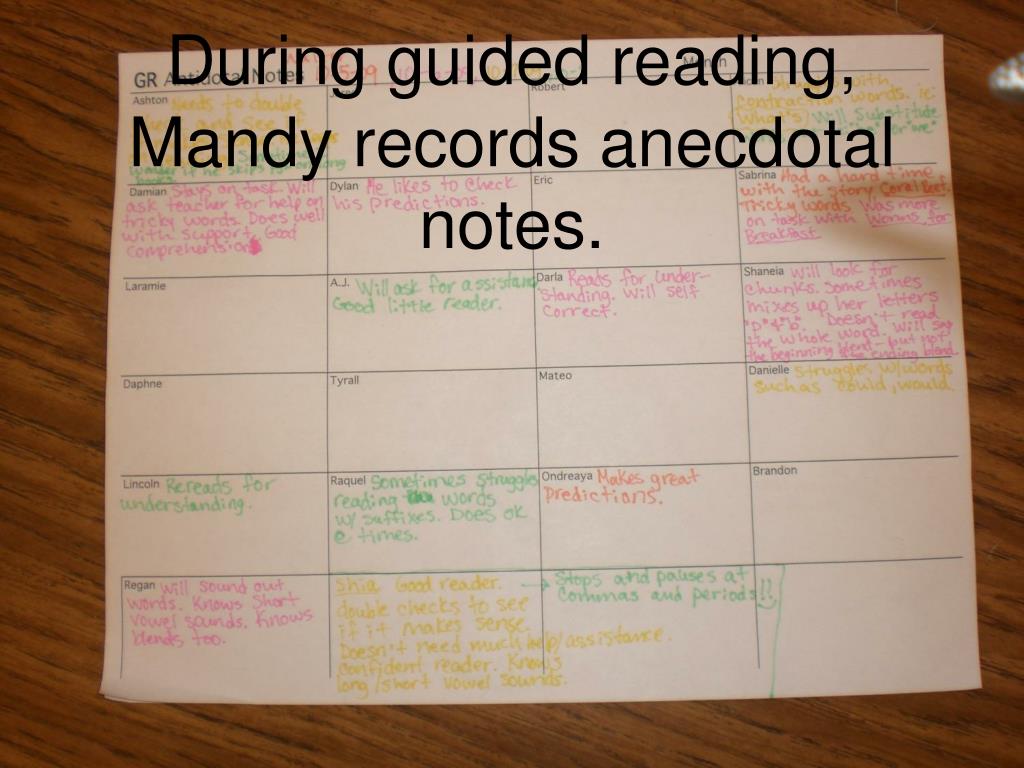 During guided reading,
Mandy records anecdotal
notes.
GR Antidotal Notes
Ashton Needs to double
Robert
with
contraction words. ie:
(what's) Will substitute
Damian Stays on task. Will
ask teacher for help on
tricky words. Does well
with support. Good
comprehension
Dylan He likes to check
his predictions.
Eric
Sabrina Had a hard time
with the story Coral Reef.
Tricky words. Was more
on task with Worms for
Breakfast.
Laramie
A.J. Will ask for assistance
Good little reader.
Darla Reads for under-
standing. Will self
correct.
Shaneia Will look for
chunks. Sometimes
mixes up her letters
"D"&"b". Doesn't read
the whole word. Will say
the beginning blend-but not
the ending blend.
Daphne
Tyrall
Mateo
Danielle struggles w/words
such as could, would.
Lincoln Rereads for
understanding.
Raquel Sometimes struggles
reading words
w/ suffixes. Does ok
@ times.
Ondreaya Makes great
predictions.
Brandon
Regan will sound out
words. Knows Short
vowel sounds. Knows
blends too.
Shia Good reader.
double checks to see
if it makes sense.
Doesn't need much help/assistance.
confident reader. Knows
long/short vowel sounds.
→ Stops and pauses at
commas and periods!!